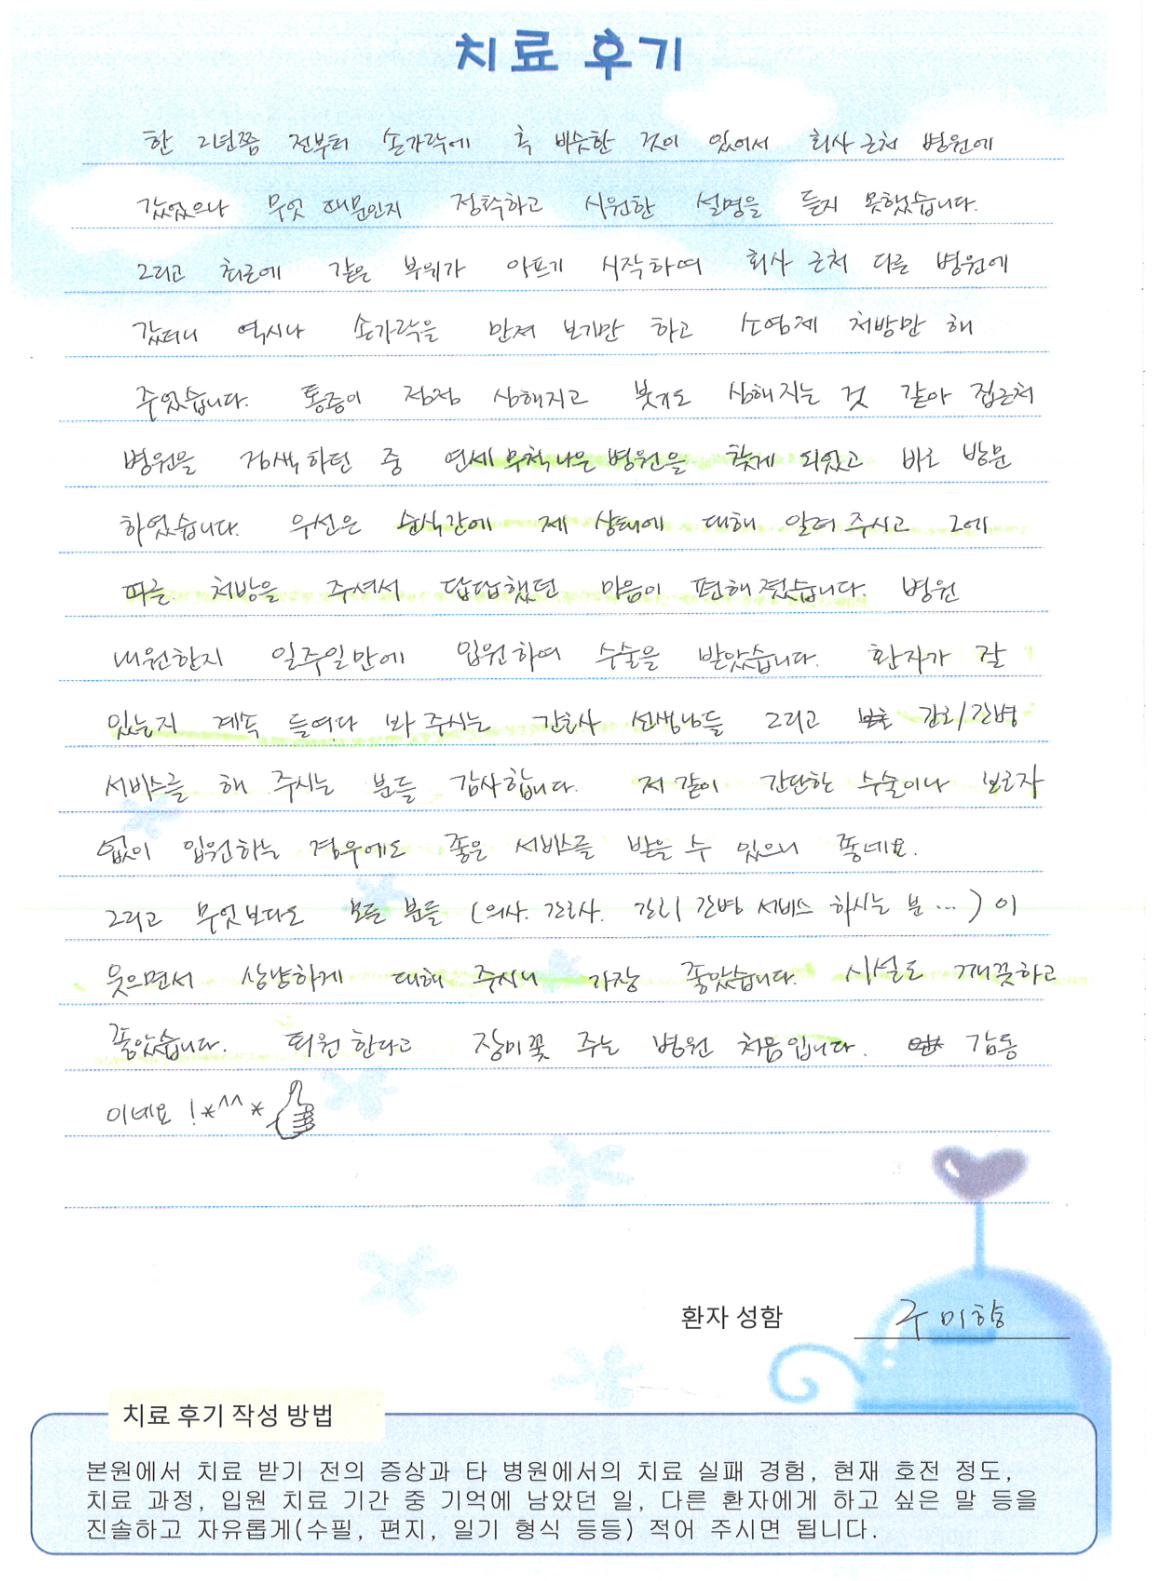 치료 후기
한 2년쯤 전부터 손가락에 혹 비슷한 것이 있어서 회사 근처 병원에
갔었으나 무엇 때문인지 정확하고 시원한 설명을 듣지 못했습니다.
그리고 최근에 같은 부위가 아프기 시작하여 회사 근처 다른 병원에
갔더니 역시나 손가락을 만져 보기만 하고 소염제 처방만 해
주었습니다. 통증이 점점 심해지고 붓기도 심해지는 것 같아 집근처
병원을 검색하던 중 연세무척나은병원을 찾게 되었고 바로 방문
하였습니다. 우선은 순식간에 제 상태에 대해 알려 주시고 그에
따른 처방을 주셔서 답답했던 마음이 편해졌습니다. 병원
내원한지 일주일만에 입원하여 수술을 받았습니다. 환자가 잘
있는지 계속 들여다 봐 주시는 간호사 선생님들 그리고 관리/간병
서비스를 해 주시는 분들 감사합니다. 저 같이 간단한 수술이나 보호자
없이 입원하는 경우에도 좋은 서비스를 받을 수 있으니 좋네요.
그리고 무엇보다도 모든 분들 (의사. 간호사. 관리 간병 서비스 하시는 분...) 이
웃으면서 상냥하게 대해 주시니 가장 좋았습니다. 시설도 깨끗하고
좋았습니다. 퇴원한다고 장미꽃 주는 병원 처음입니다. 감동
이네요 !*^^*
환자 성함 구미향
치료 후기 작성 방법
본원에서 치료 받기 전의 증상과 타 병원에서의 치료 실패 경험, 현재 호전 정도,
치료 과정, 입원 치료 기간 중 기억에 남았던 일, 다른 환자에게 하고 싶은 말 등을
진솔하고 자유롭게(수필, 편지, 일기 형식 등등) 적어 주시면 됩니다.